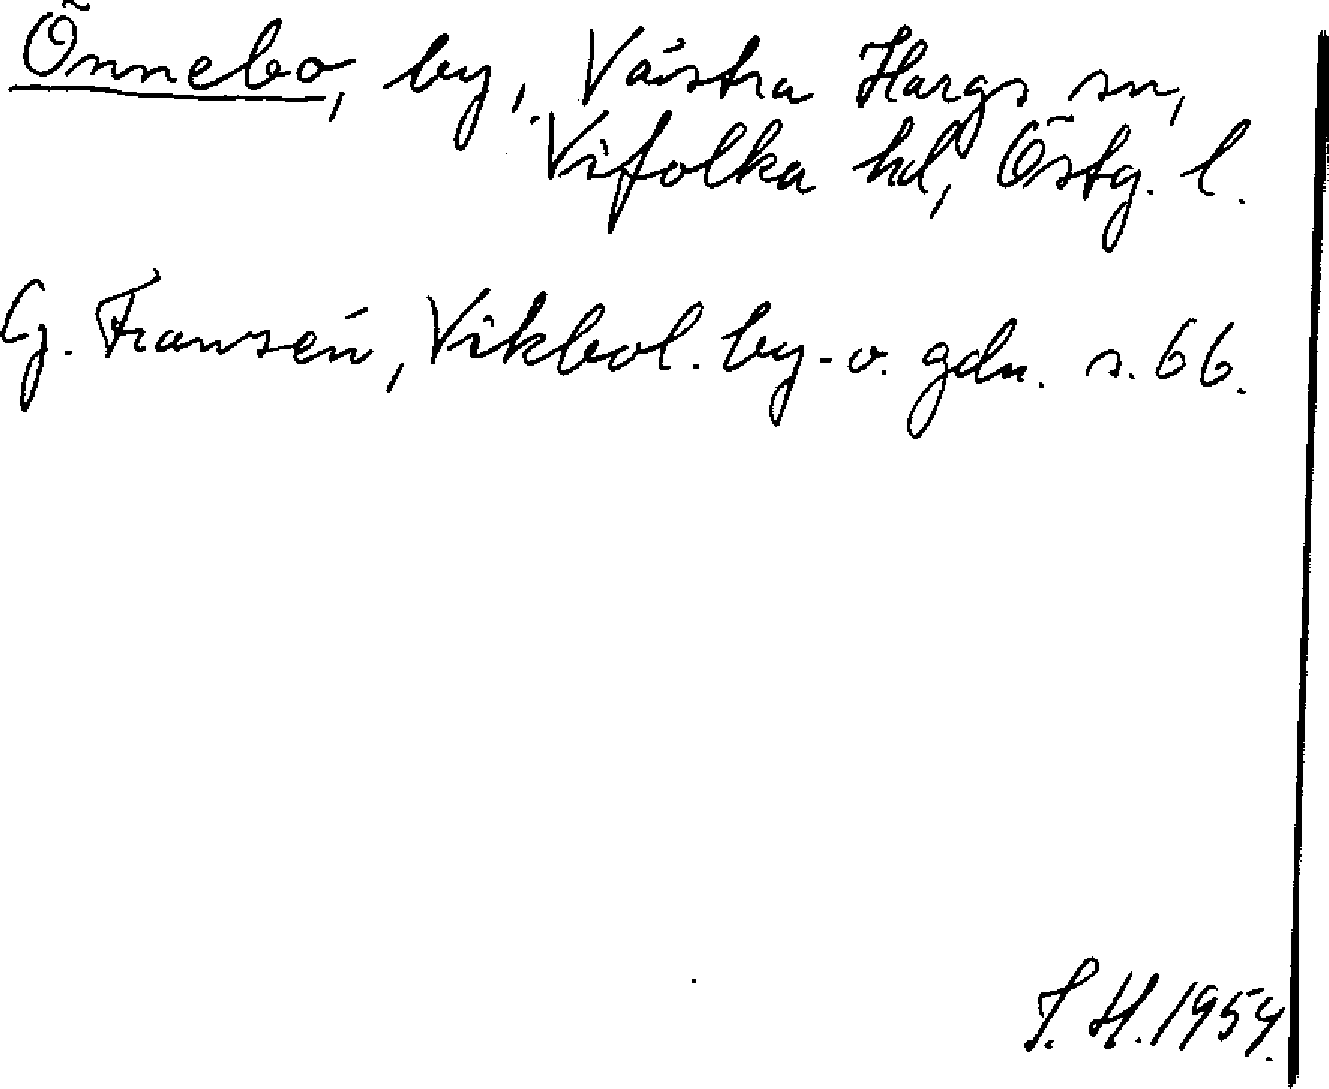 Önnebo, by, Västra Hargs sn,
Vifolka hd, Östg. l.
Cj. Franzén, Vikbol. by- o. gdn. s. 66.
S. H. 1954.